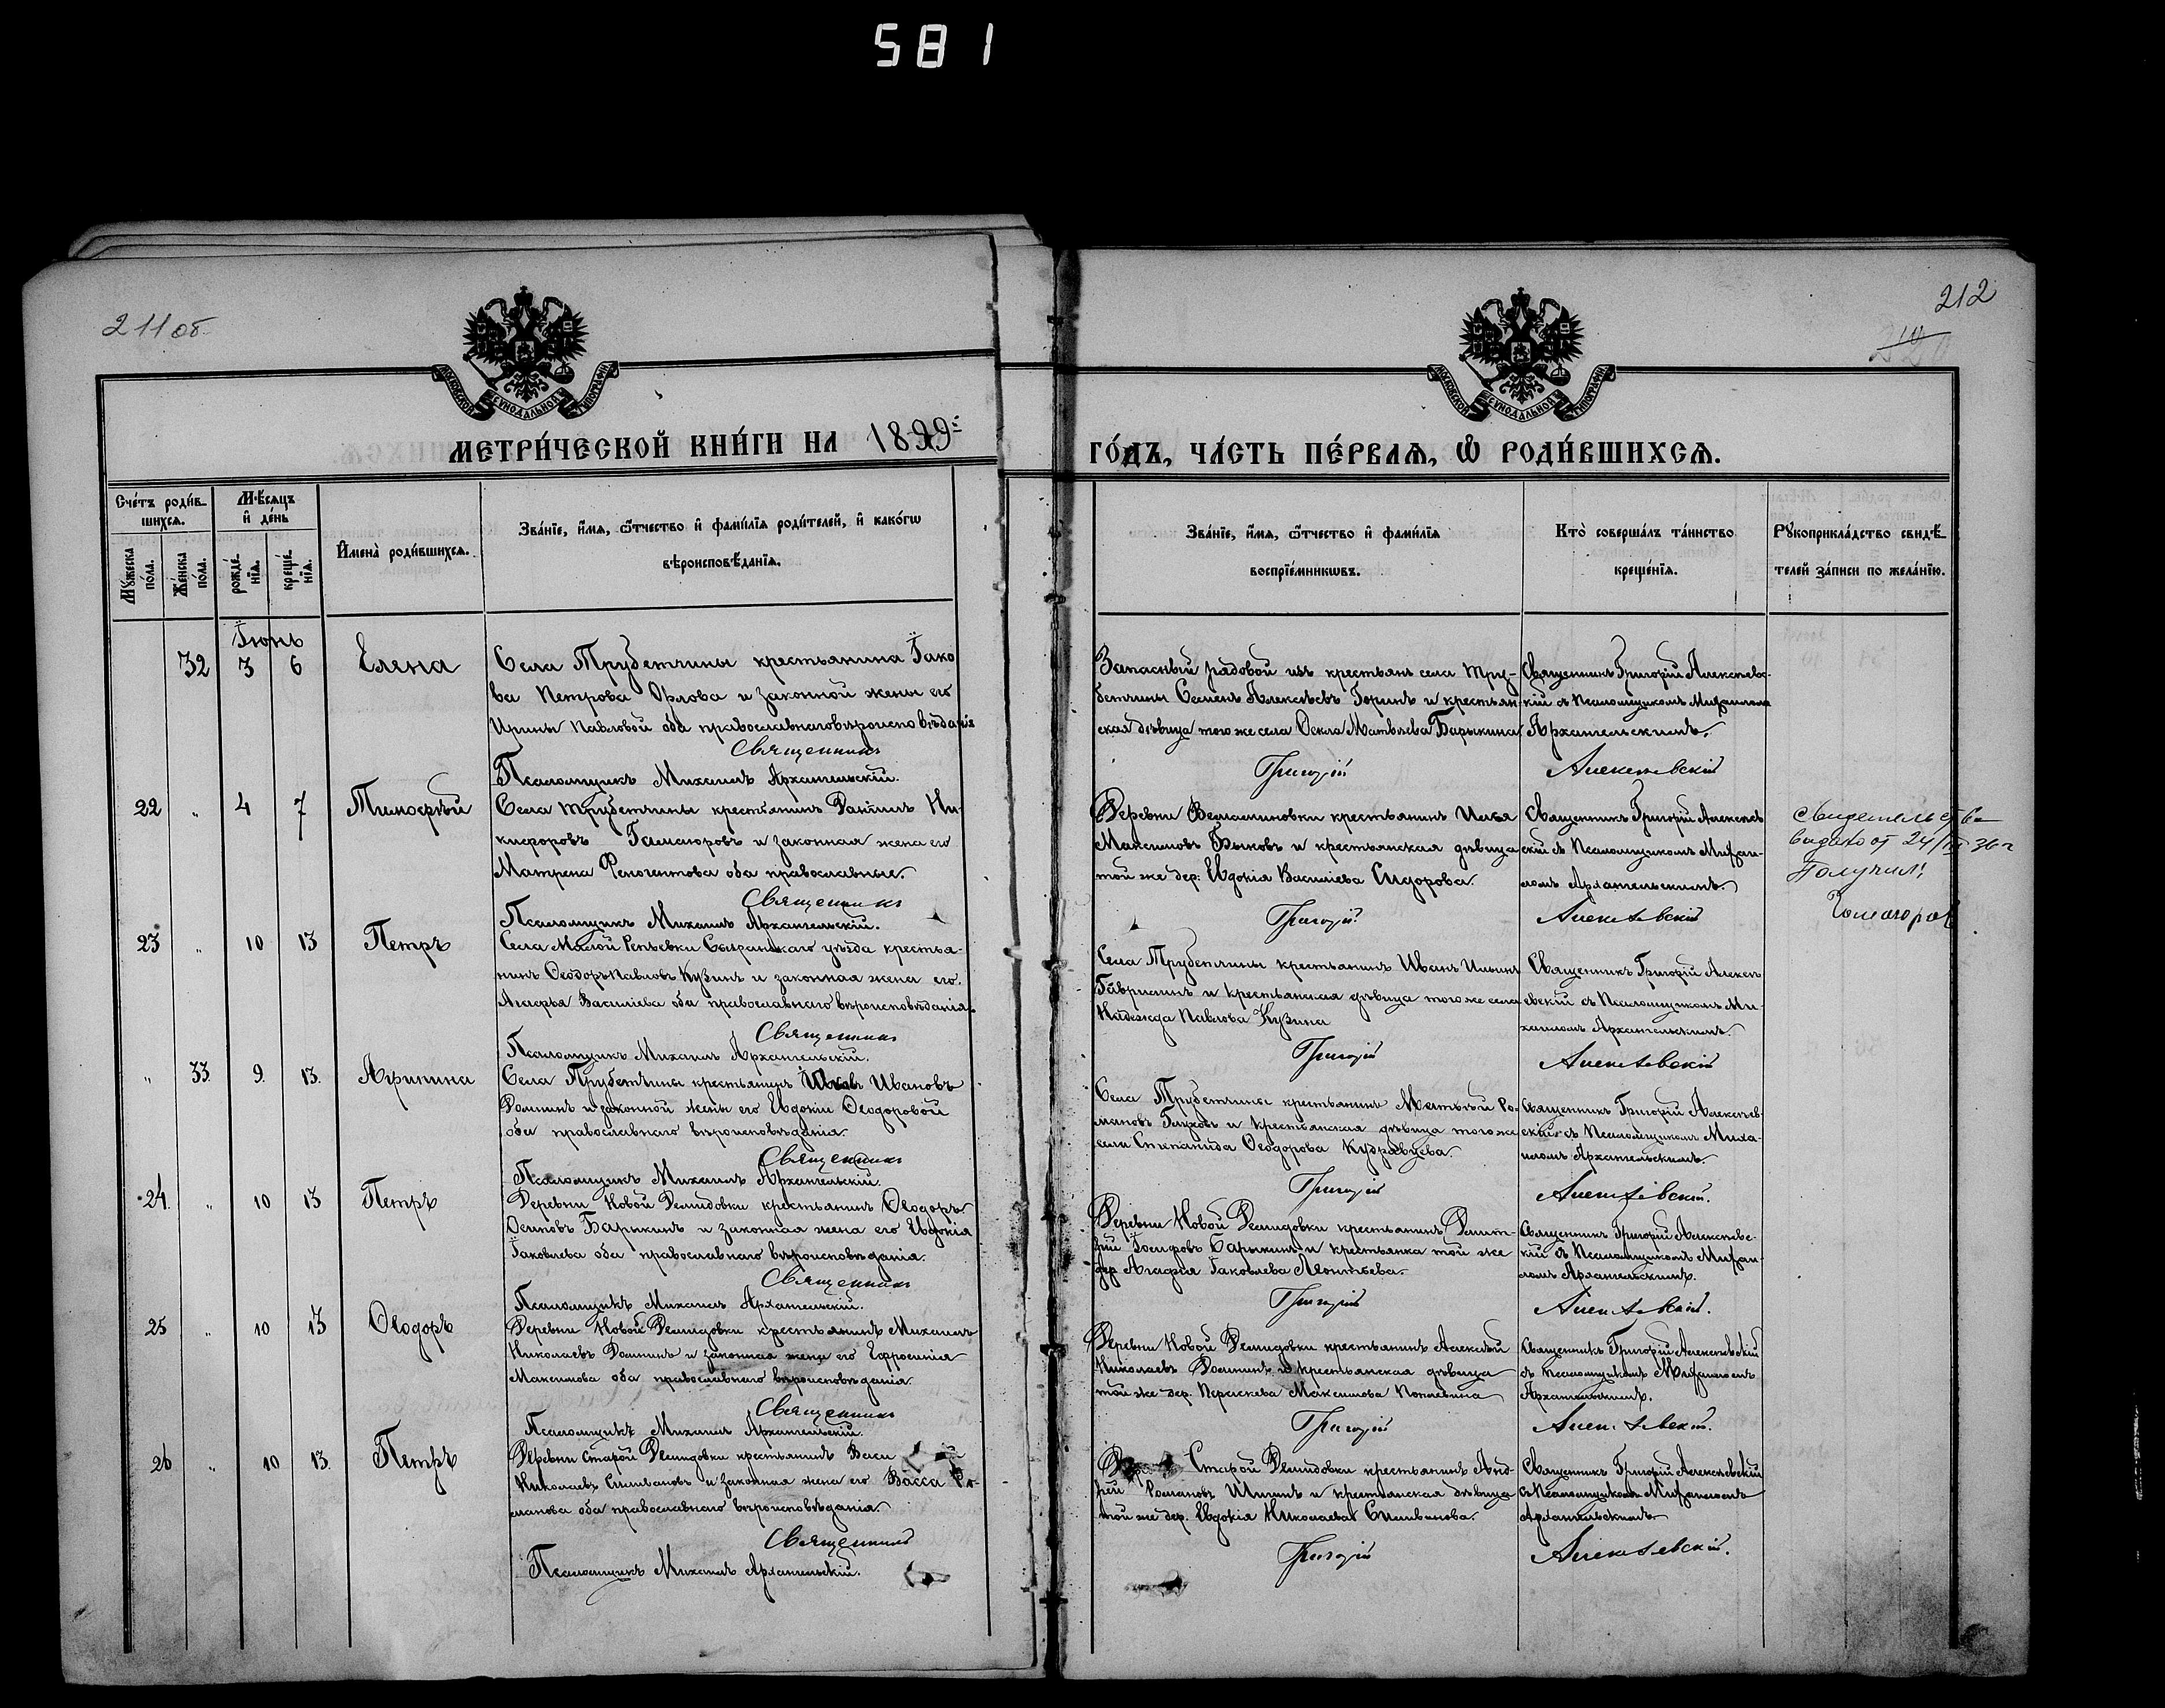 581
211об
212
МОСКОВСКОЙ СѴНОДАЛЬНОЙ ТИПОГРАФІИ
МОСКОВСКОЙ СѴНОДАЛЬНОЙ ТИПОГРАФІИ
МЕТРИ́ЧЕСКОЙ КНИ́ГИ НА 1899й
ГО́ДЪ, ЧА́СТЬ ПЕ́РВАѦ, Ѡ҆ РОДИ́ВШИХСѦ.
Сче́тъ роди́в-
шихсѧ.
Мꙋжеска по́ла.
Же́нска по́ла.
Мѣ́сѧцъ
и҆ де́нь
рожде́нїѧ.
креще́нїѧ.
И҆мена̀ роди́вшихсѧ.
Зва́нїе, и҆́мѧ, ѻ҆́тчество и҆ фами́лїѧ роди́телей, и҆ како́гѡ
вѣроисповѣ́данїѧ.
Зва́нїе, и҆́мѧ, ѻ҆́тчество и҆ фами́лїѧ
воспрїе́мникѡвъ.
Кто̀ соверша́лъ та́инство
креще́нїѧ.
Рꙋкоприкла́дство свидѣ́-
телей за́писи по жела́нїю.
Іюнь
32 3 6 Елена
Села Трубетчины крестьянина Іако
ва Петрова Орлова и законной жены его
Ирины Павловой оба православнаго вѣроисповѣданія
Священникъ
Псаломщикъ Михаилъ Архангельскій.
Запасный рядовой изъ крестьянъ села Тру-
бетчины Семенъ Алексѣевъ Горинъ и крестьян-
ская дѣвица того же села Матвѣева Барыкина
Григорій
Священникъ Григорій Алексѣевс-
кій съ Псаломщикомъ Михаиломъ
Архангельскимъ.
Алексѣевскій
22 " 4 7 Тимофѣй
Села Трубетчины крестьянинъ Даніилъ Ни-
кифоровъ и законная жена его
Матрена оба православные.
Священникъ
Псаломщикъ Михаилъ Архангельскій.
Деревни крестьянинъ Илья
Максимовъ Быковъ и крестьянская дѣвица
той же дер. Евдокія Василіева Сидорова.
Григорій
Священникъ Григорій Алексѣев
скій съ Псаломщикомъ Михаи-
ломъ Архангельскимъ.
Алексѣевскій
свидетельство
выдано от 24/ 36 г
Получил:
23 " 10 13 Петръ
Села Малой Репьевки Сызранскаго уѣзда крестья-
нинъ Ѳеодоръ Павловъ Кузинъ и законная жена его
Василіева оба православнаго вѣроисповѣданія.
Священникъ
Псаломщикъ Михаилъ Архангельскій.
Села Трубетчины крестьянинъ Иванъ Ильинъ
Гавриилинъ и крестьянская дѣвица того же села
Надежда Павлова Кузина
Григорій
Священникъ Григорій Алексѣ
евскій съ Псаломщикомъ Ми-
хаиломъ Архангельскимъ.
Алексѣевскій
" 33. 9. 13. Агрипина
Села Трубетчины крестьянинъ Ивановъ
Доминъ и законной жены его Евдокіи Ѳеодоровой
оба православнаго вѣроисповѣданія.
Священникъ
Псаломщикъ Михаилъ Архангельскій.
Села Трубетчины крестьянинъ Матвѣй Ро-
мановъ и крестьянская дѣвица того же
села Степанида Ѳеодорова Кудрявцева.
Григорій
Священникъ Григорій Алексѣев-
скій съ Псаломщикомъ Миха-
иломъ Архангельскимъ.
Алексѣевскій.
24. " 10 13 Петръ
Деревни Новой Демидовки крестьянинъ Ѳеодоръ
Осиповъ Барыкинъ и законная жена его Евдокія
Іаковлева оба православнаго вѣроисповѣданія.
Священникъ
Псаломщикъ Михаилъ Архангельскій.
Деревни Новой Демидовки крестьянинъ Димит-
рій Іосифовъ Барыкинъ и крестьянка той же
дер Агафія Іаковлева Леонтьева.
Григорій
Священникъ Григорій Алексѣевс-
кій съ Псаломщикомъ Михаи-
ломъ Архангельскимъ.
Алексѣевскій.
25 " 10 13 Ѳеодоръ
Деревни Новой Демидовки крестьянинъ Михаилъ
Николаевъ Доминъ и законная жена его Ефросинія
Максимова оба православнаго вѣроисповѣданія
Священникъ
Псаломщикъ Михаилъ Архангельскій.
Деревни Новой Демидовки крестьянинъ Алексѣй
Николаевъ Доминъ и крестьянская дѣвица
той же дер. Параскева Максимова
Григорій
Священникъ Григорій Алексѣевскій
съ Псаломщикомъ Михаиломъ
Архангельскимъ.
Алексѣевскій.
26 " 10 13. Петръ
Деревни Старой Демидовки крестьянинъ Васи
Николаевъ и законная жена его Васса Ро-
манова оба православнаго вѣроисповѣданія.
Священникъ
Псаломщикъ Михаилъ Архангельскій.
Старой Демидовки крестьянинъ Анд-
рей Романовъ и крестьянская дѣвица
той же дер. Евдокія Николаева
Григорій
Священникъ Григорій Алексѣевскій
съ Псаломщикомъ Михаиломъ
Архангельскимъ.
Алексѣевскій.